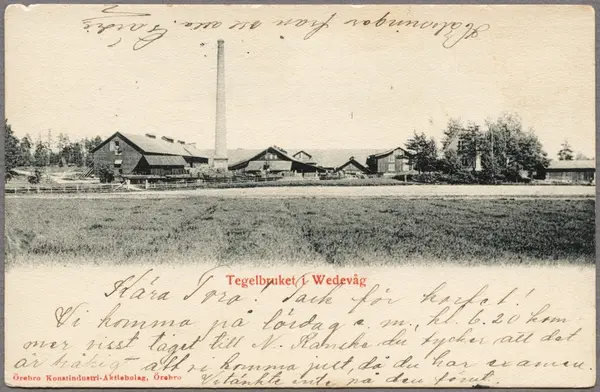 Hälsningar från oss alla. Tardis
Tegelbruket i Wedevåg
Kära Tora! Tack för korfet!
Vi komma på lördag e. m., kl. 6.20 kom-
mer visst tåget till N. Kanske du tycker att det
är tråkigt att vi komma just då du har examen.
Vi tänkte inte på den först.
Örebro Konstindustri-Aktiebolag, Örebro